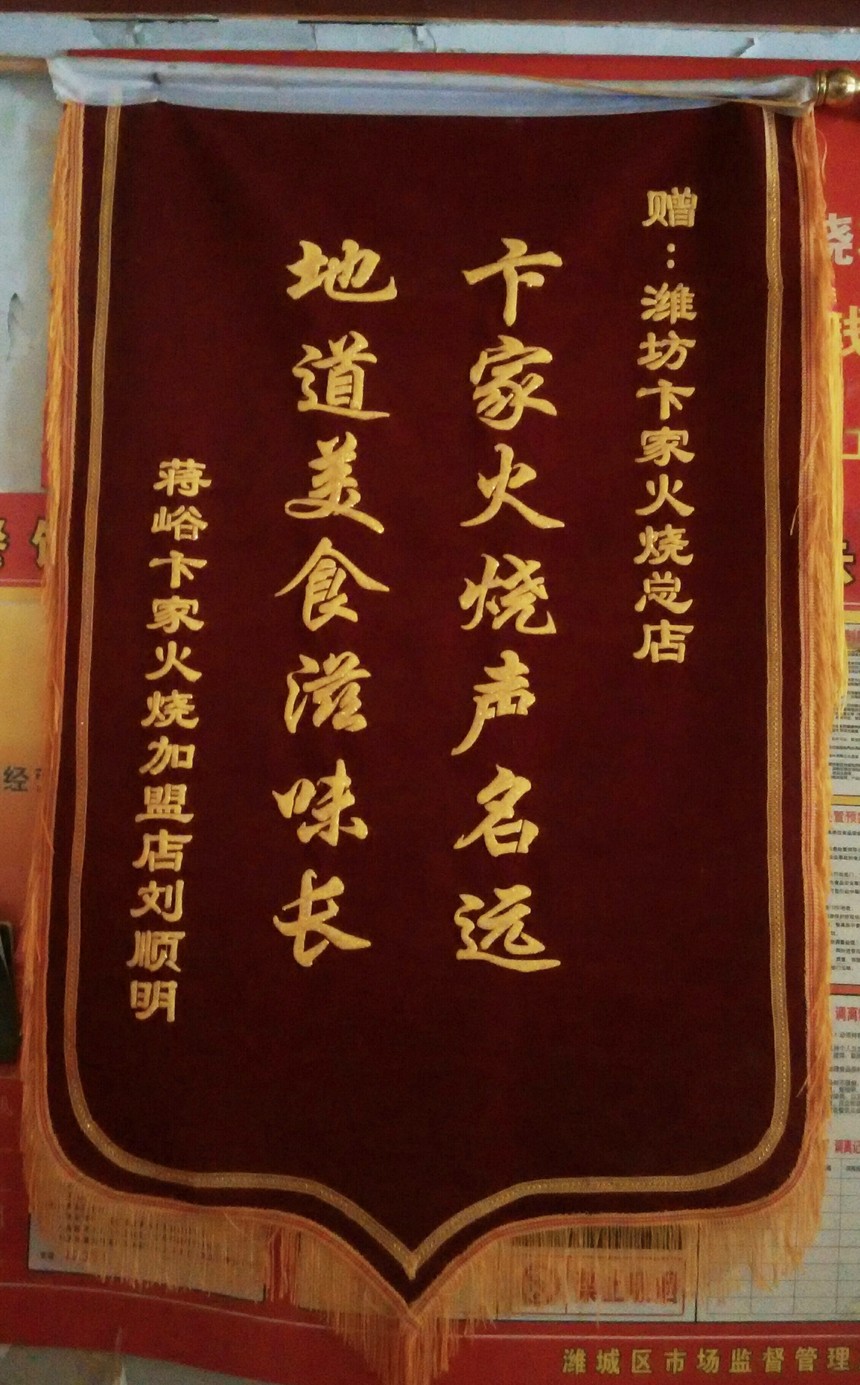 赠：潍坊卞家火烧总店
卞家火烧声名远
地道美食滋味长
蒋峪卞家火烧加盟店刘顺明
潍城区市场监督管理